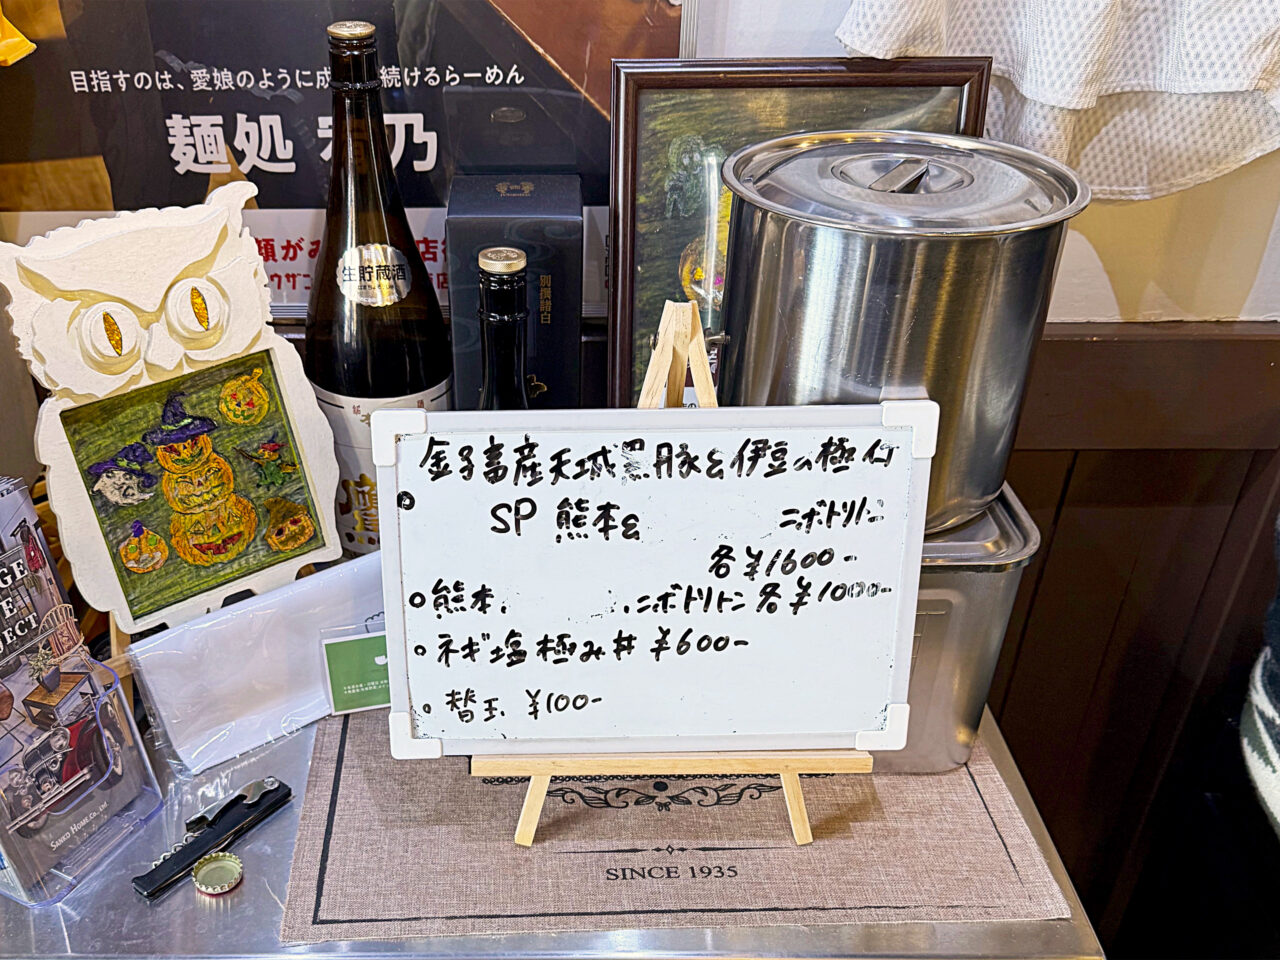 目指すのは、愛娘のように成 続けるらーめん
麺処 乃
顔がみ 店
ウザン 店
生貯蔵酒
別撰諸白
金子畜産天城黒豚と伊豆の極
SP 熊本 ニボトリトン
各¥1600-
熊本 ニボトリトン各¥1000-
ネギ塩極み丼 ¥600-
替玉 ¥100-
SINCE 1935
GE
E
JECT
SANKO HOME Co., Ltd.